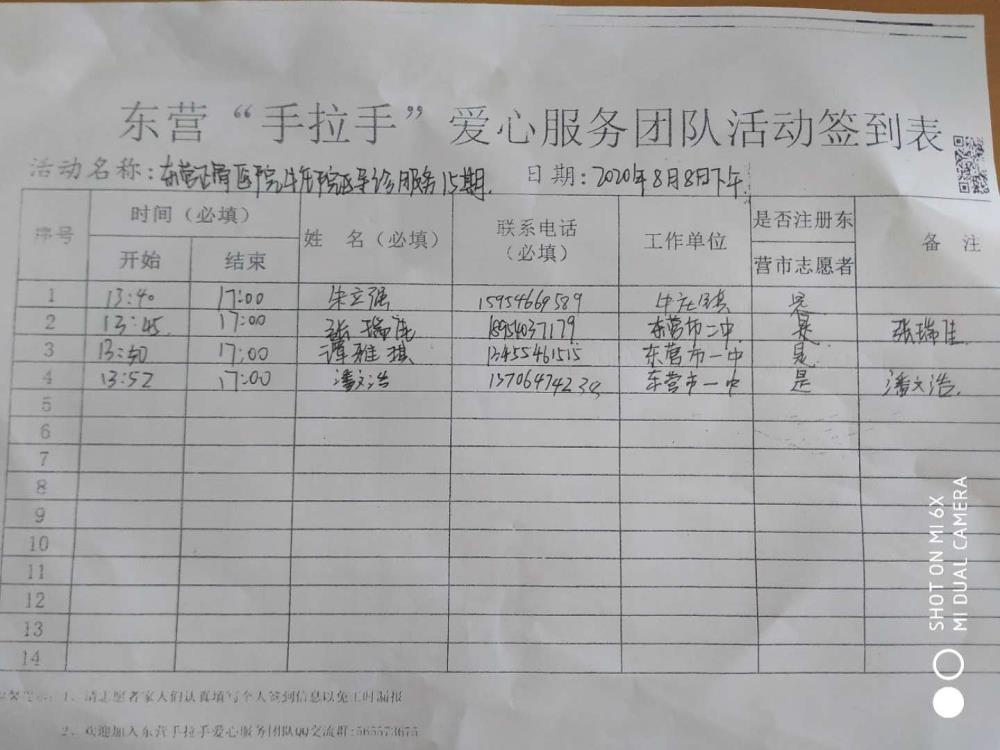 东营“手拉手”爱心服务团队活动签到表
活动名称：东营正骨医院牛庄院区导诊服务15期. 日期：2020年8月8日下午
序号 时间（必填） 姓 名（必填） 联系电话（必填） 工作单位 是否注册东营市志愿者 备 注
开始 结束
1 13:40 17:00 朱立强 15954669589 是
2 13:45 17:00 张瑞佳 18954037179 东营市二中 是 张瑞佳.
3 13:50 17:00 谭雅琪 13455461515 东营市一中 是
4 13:52 17:00 潘文浩 13706474234 东营市一中 是 潘文浩.
5
6
7
8
9
10
11
12
13
14
1、请志愿者家人们认真填写个人签到信息以免工时漏报
2、欢迎加入东营手拉手爱心服务团队QQ交流群:565573675
SHOT ON MI 6X
MI DUAL CAMERA